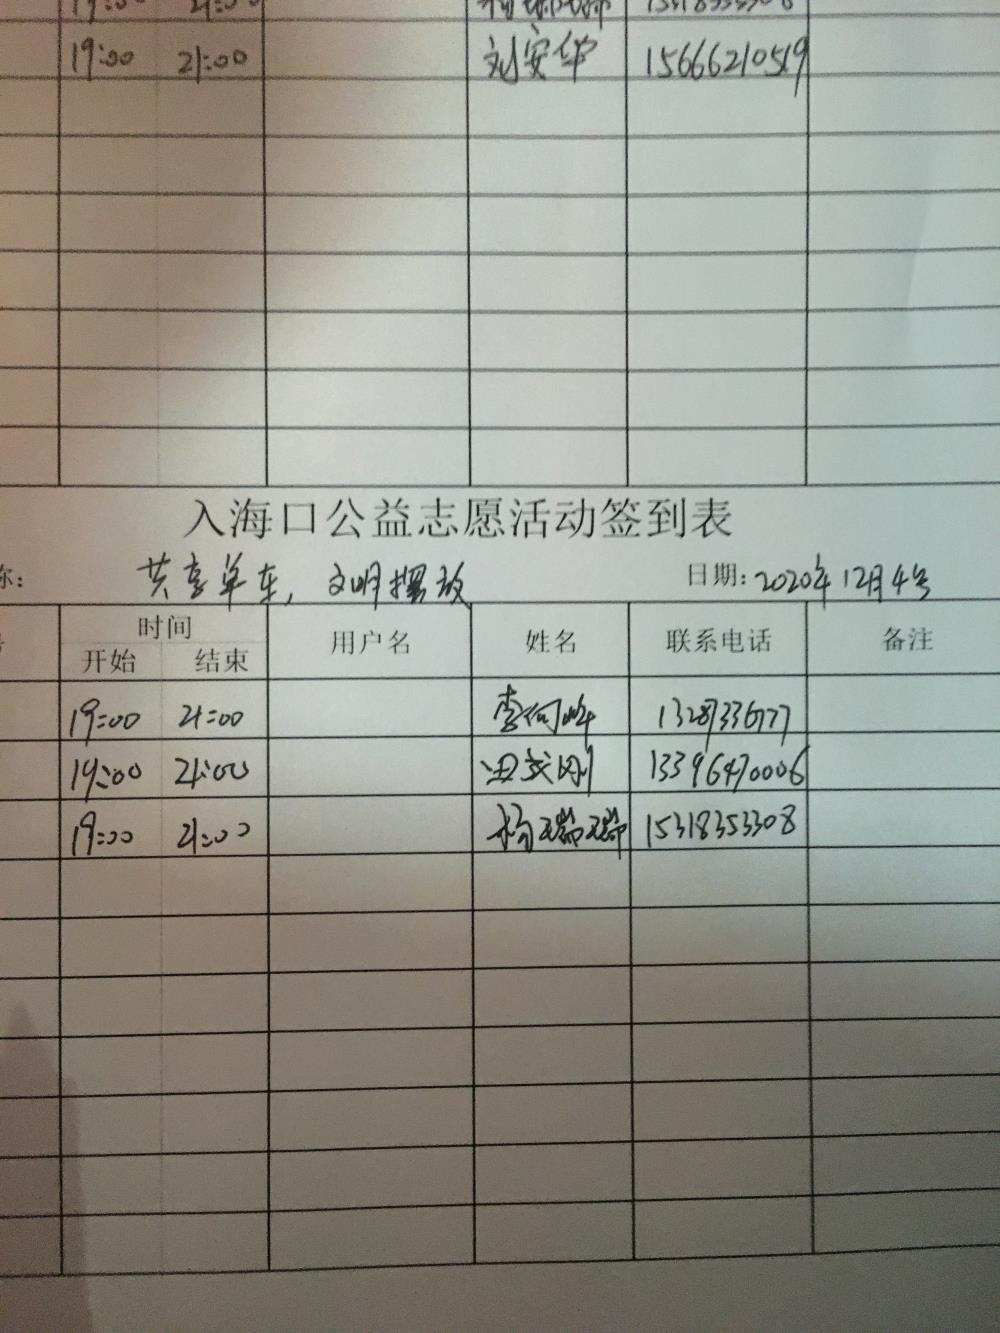 19:00 21:00 15318353308
19:00 21:00 刘安华 15666210519
入海口公益志愿活动签到表
称: 共享单车,文明摆放 日期:2020年12月4号
时间 用户名 姓名 联系电话 备注
开始 结束
19:00 21:00 李何峰 13287336777
19:00 21:00 13396470006
19:00 21:00 杨瑞瑞 15318353308